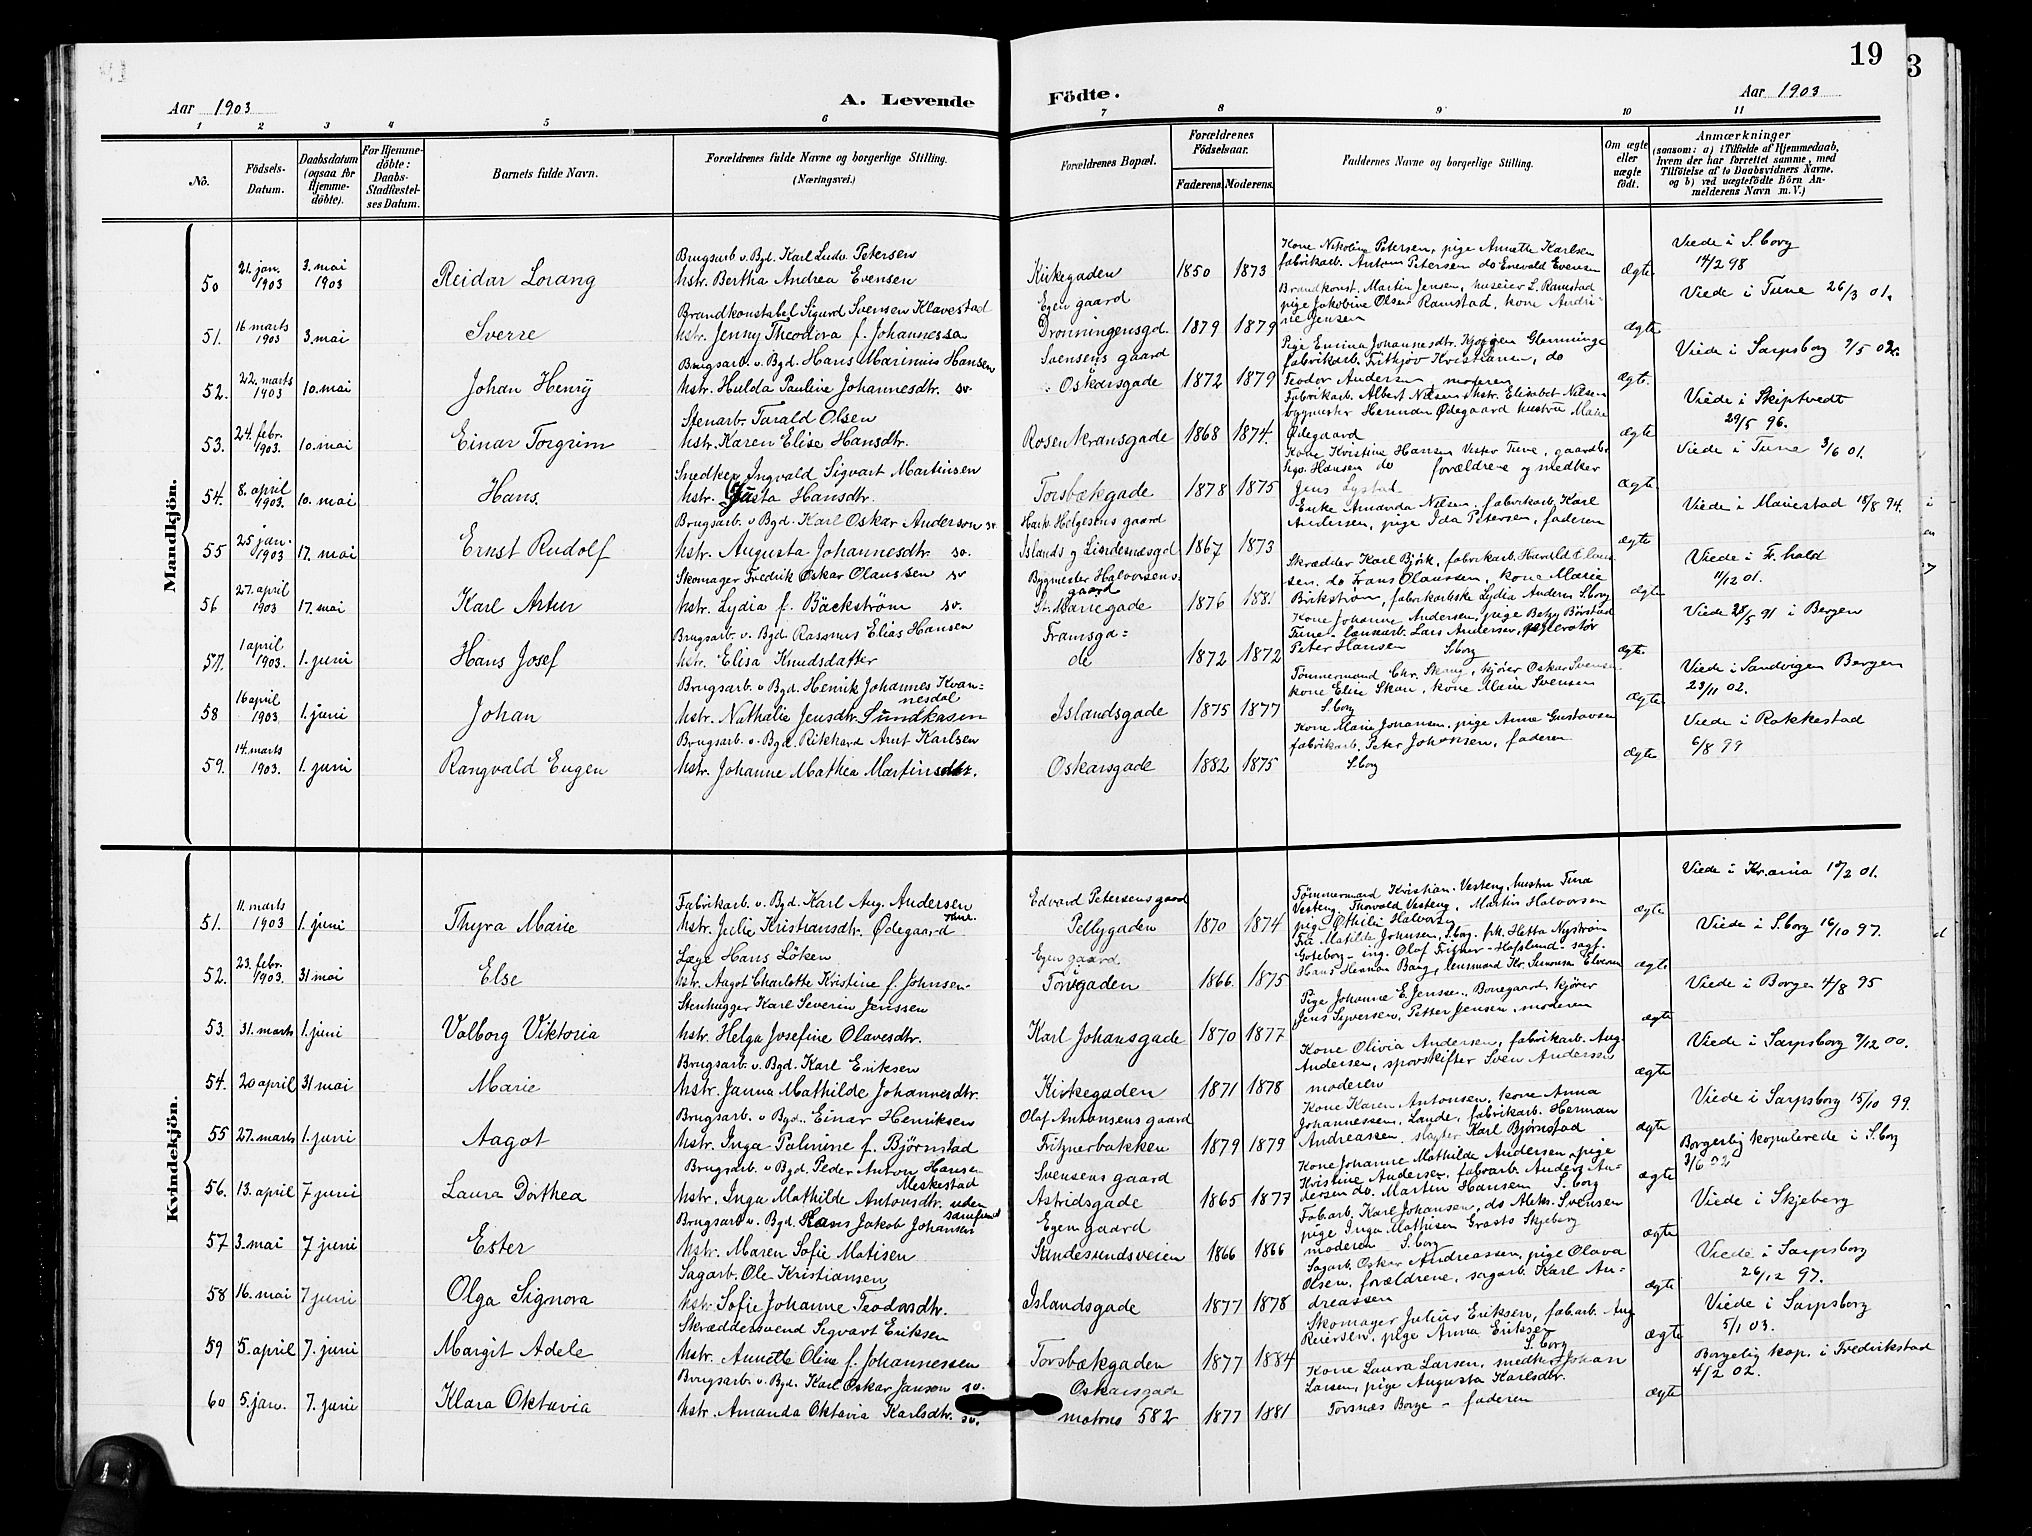 19
3
Aar 1903
A. Levende
Födte.
Aar 1903
1 2 3 4 5 6 7 8 9 10 11
No.
Födsels-
Datum.
Daabsdatum
(ogsaa for
Hjemme-
döbte).
For Hjemme-
döbte:
Daabs-
Stadfæstel-
ses Datum.
Barnets fulde Navn.
Forældrenes fulde Navne og borgerlige Stilling.
(Næringsvei.)
Forældrenes Bopæl.
Forældrenes
Födselsaar.
Faderens. Moderens.
Faddernes Navne og borgerlige Stilling.
Om ægte
eller
uægte
födt.
Anmærkninger
(saasom: a) i Tilfælde af Hjemmedaab,
hvem der har forrettet samme, med
Tilföielse af to Daabsvidners Navne.
og b) ved uægtefödte Börn An-
melderens Navn m. V.)
Mandkjön.
50 21. jan. 1903 3. mai 1903 Reidar Lorang
Brugsarb v. Byd. Karl Ludv. Petersen
hstr. Bertha Andrea Evensen
Kirkegaden 1850 1873
Kone Nikoline Petersen, pige Annette Karlsen
fabrikarb. Anton Petersen do Enevald Evensen
ægte
Viede i S.borg
14/2 98
51. 16 marts 1903 3. mai Sverre
Brandkonstabel Sigurd Svensen Klavestad
hstr. Jenny Theodora f. Johannessen
Egen gaard
Dronningensgd. 1879 1879
Brandkonst. Martin Jensen, huseier L. Ramstad
pige Jakobine Olsen Ramstad, kone Andri-
ne Jensen
ægte
Viede i Tune 26/3 01.
52. 22. marts 1903 10. mai Johan Henry
Brugsarb. v. Byd. Hans Marinius Hansen
hstr. Hulda Pauline Johannesdtr. sv.
Svensens gaard
Oskarsgade 1872 1879
Pige Emma Johannesdtr. Glemminge
fabrikarb. Fritjov Kristiansen, do
Teodor Andersen, moderen
ægte.
Viede i Sarpsborg 9/5 02.
53. 24. febr. 1903. 10. mai Einar Torgrim
Stenarb. Tarald Olsen
hstr. Karen Elise Hansdtr.
Rosenkransgade 1868 1874.
Fabrikarb. Albert Nilsen, hstr. Elisabet Nilsen
bygmester Herman Ødegaard hustru Marie
Ødegaard
ægte
Viede i Skiptvedt
29/5 96.
54. 8. april 1903. 10. mai Hans.
Snedker Ingvald Sigvart Martinsen
hstr. Gusta Hansdtr.
Torsbækgade 1878 1875
Kone Kristine Hansen Vester Tune, gaardbr.
Hansen do forældrene og snedker
Jens Lystad
ægte
Viede i Tune 3/6 01.
55 25 jan. 1903 17. mai Ernst Rudolf
Brugsarb v. Byd. Karl Oskar Anderson sv.
hstr. Augusta Johannesdtr sv.
Helgesens gaard
Islands g Lindemæsgd 1867 1873
Enke Amanda Nilsen, fabrikarb. Karl
Andersen, pige Ida Petersen, faderen
ægte
Viede i Mariestad 18/8 94.
56 27. april 1903 17. mai Karl Artur
Skomager Fredrik Oskar Olaussen sv
hstr. Lydia f. Bäckström sv.
Bygmester Halvorsens
gaard
St. Mariegade 1876 1881
Skrædder Karl Bjørk, fabrikarb. Harald Olaus-
sen, do Frans Olaussen, kone Marie
Birkstrøm, fabrikarbske Lydia Anders. S.borg
ægte
Viede i Fr.hald
11/12 01.
57. 1 april 1903. 1. juni Hans Josef
Brugsarb. v. Byd. Rasmus Elias Hansen
hstr. Elisa Knudsdatter
Framsga-
de 1872 1872
Kone Johanne Andersen, pige Betsy Børstad
Tune - lænsearb. Lars Andersen,
Peter Hansen S.borg
ægte.
Viede 28/5 91 i Bergen
58 16 april 1903. 1. juni Johan
Brugsarb. v. Byd. Henrik Johannes Kvan-
nesdal
hstr. Nathalie Jensdtr. Sundkasen
Islandsgade 1875 1877
Tømmermand Chr. Skau, kjører Oskar Svensen
kone Elise Skau, kone Marie Svensen
S.borg
ægte
Viede i Sandvigen Bergen
23/11 02.
59. 14. marts 1903. 1. juni Rangvald Eugen
Brugsarb. v. Byd. Rikhard Arnt Karlsen
hstr. Johanne Mathea Martinsdtr.
Oskarsgade 1882 1875
Kone Marie Johansen, pige Anne Gustavsen
fabrikarb. Peter Johansen, faderen
S.borg
ægte
Viede i Rakkestad
6/8 99
Kvindekjön.
51. 11. marts 1903 1. juni Thyra Marie
Fabrikarb. v. Byd. Karl Aug. Andersen
hstr. Julie Kristiansdtr. Ødegaard
Edvard Petersens gaard
Pellygaden 1870 1874
Tømmermand Kristian Vesteng, hustru Tina
Vesteng, Thorvald Vesteng, Martin Halvorsen
pige Othilie Halvorsen
ægte
Viede i Kr.ania 10/2 01.
52. 23. febr. 1903. 31 mai Else
Læge Hans Löken
hstr. Aagot Charlotte Kristine f. Johnsen.
Egen gaard.
Torvgaden 1866. 1875
Fru Matilde Johnsen, S.borg. frk. Hetta Nystrøm
Goteborg - ing. Olaf Fritzner - Hafslund - sagf.
Hans Herman Bang, lensmand Kr. Simonsen Elverum
ægte
Viede i S.borg 16/10 97.
53. 31. marts 1. juni Valborg Viktoria
Stenhugger Karl Severin Jenssen
hstr. Helga Josefine Olavesdtr.
Karl Johansgade 1870 1877
Pige Johanne E. Jenssen, Borregaard, kjører
Jens Syversen, Petter Jensen, moderen
ægte
Viede i Borge 4/8 95
54. 20 april 31 mai Marie
Brugsarb. v. Byd. Karl Eriksen
hstr. Janna Mathilde Johannesdtr.
Kirkegaden 1871 1878
Kone Olivia Andersen, fabrikarb. Aug.
Andersen, sporskifter Sven Andersen
moderen
ægte
Viede i Sarpsborg 9/12 00.
55 27. marts 1. juni Aagot
Brugsarb. v. Byd. Einar Henriksen
hstr. Inga Palmine f. Bjørnstad
Olaf Antonsens gaard
Fritznerbakken 1879 1879
Kone Karen Antonsen, kone Anna
Johannessen, Lande, fabrikarb. Herman
Andreassen, slagter Karl Bjørnstad
ægte
Viede i Sarpsborg 15/10 99.
56. 13. april 7 juni Laura Dorthea
Brugsarb. v. Byd. Peder Anton Hansen
Meskestad
hstr. Inga Mathilde Antonsdtr. uden
samfund
Svensens gaard
Astridsgade 1865 1877
Kone Johanne Mathilde Andersen, pige
Kristine Andersen, fabarb. Anders An-
dersen do. Martin Hansen S.borg
ægte
Borgerlig kopulerede i S.borg
3/6 02
57 3. mai 7 juni Ester
Brugsarb v. Byd. Hans Jakob Johansen
hstr. Maren Sofie Matisen
Egen gaard
Sandesundsveien 1866 1866
Fab.arb. Karl Johansen, do Aleks. Svensen
pige Inga Mathisen Skjeberg
moderen S.borg
ægte
Viede i Skjeberg
58 16. mai 7 juni Olga Signora
Sagarb. Ole Kristiansen
hstr. Sofie Johanne Teodorsdtr.
Islandsgade 1877 1878
Sagarb. Oskar Andreassen, pige Olava
Olsen, forældrene, sagarb. Karl An-
dreassen
ægte
Viede i Sarpsborg
26/12 97.
59 5. april 7. juni Margit Adele
Skræddersvend Sigvart Eriksen
hstr. Annette Oline f. Johannessen
Torsbækgaden 1877 1884
Skomager Julius Eriksen, fab.arb. Aug
Reiersen, pige Anna Eriksen
S.borg
ægte
Viede i Sarpsborg
5/1 03.
60 5. jan. 7. juni Klara Oktavia
Brugsarb. v. Byd. Karl Oskar Janson sv.
hstr. Amanda Oktavia Karlsdtr. sv.
Oskarsgade
matrno 582 1877 1881
Kone Laura Larsen, snedker Johan
Larsen, pige Augusta Karlsdtr.
Torsnæs Borge - faderen
ægte
Borgelig kop. i Fredrikstad
4/2 02.